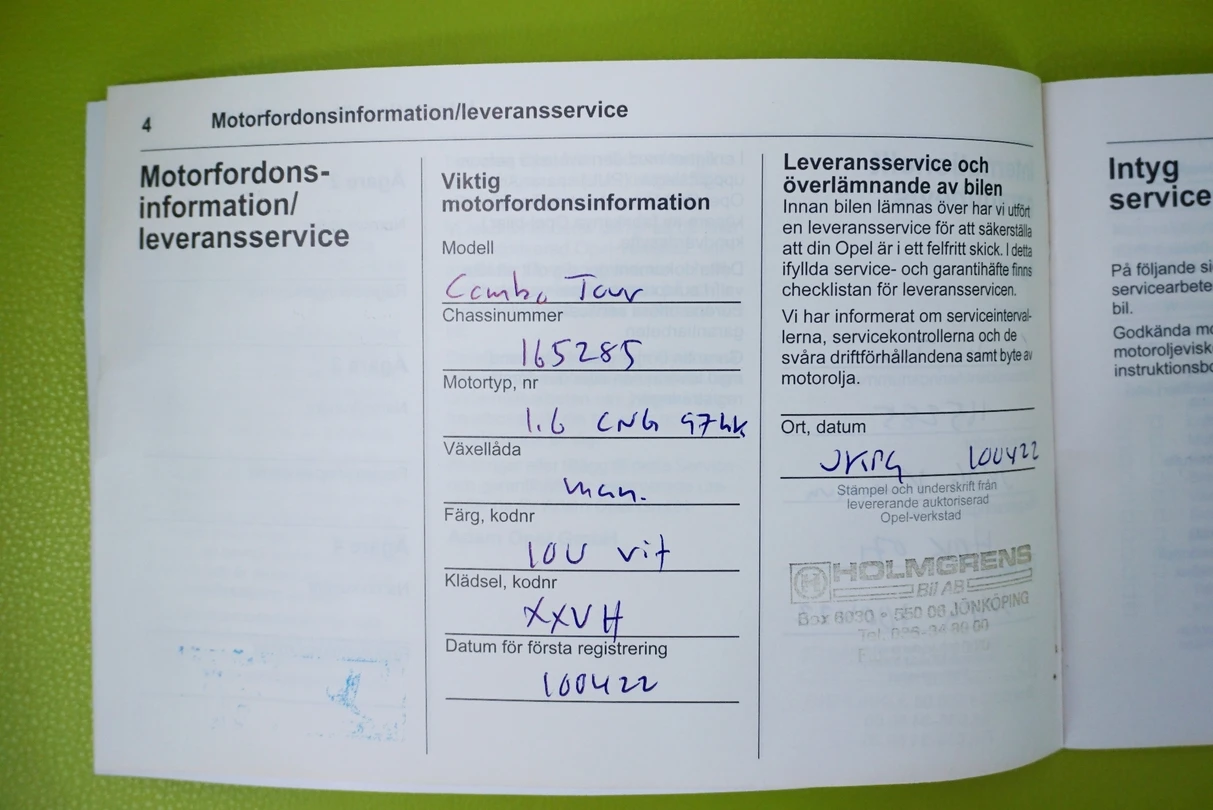 4 Motorfordonsinformation/leveransservice
Motorfordons-
information/
leveransservice
Viktig
motorfordonsinformation
Modell
Combo Tour
Chassinummer
165285
Motortyp, nr
1.6 CNG 97hk
Växellåda
man.
Färg, kodnr
10U vit
Klädsel, kodnr
XXVH
Datum för första registrering
100422
Leveransservice och
överlämnande av bilen
Innan bilen lämnas över har vi utfört
en leveransservice för att säkerställa
att din Opel är i ett felfritt skick. I detta
ifyllda service- och garantihäfte finns
checklistan för leveransservicen.
Vi har informerat om serviceinterval-
lerna, servicekontrollerna och de
svåra driftförhållandena samt byte av
motorolja.
Ort, datum
JKPG 100422
Stämpel och underskrift från
levererande auktoriserad
Opel-verkstad
HOLMGRENS
Bil AB
Box 6030 • 550 06 JÖNKÖPING
Tel.
Intyg
service
På följande si
servicearbete
bil.
Godkända mo
motoroljevisk
instruktionsbo